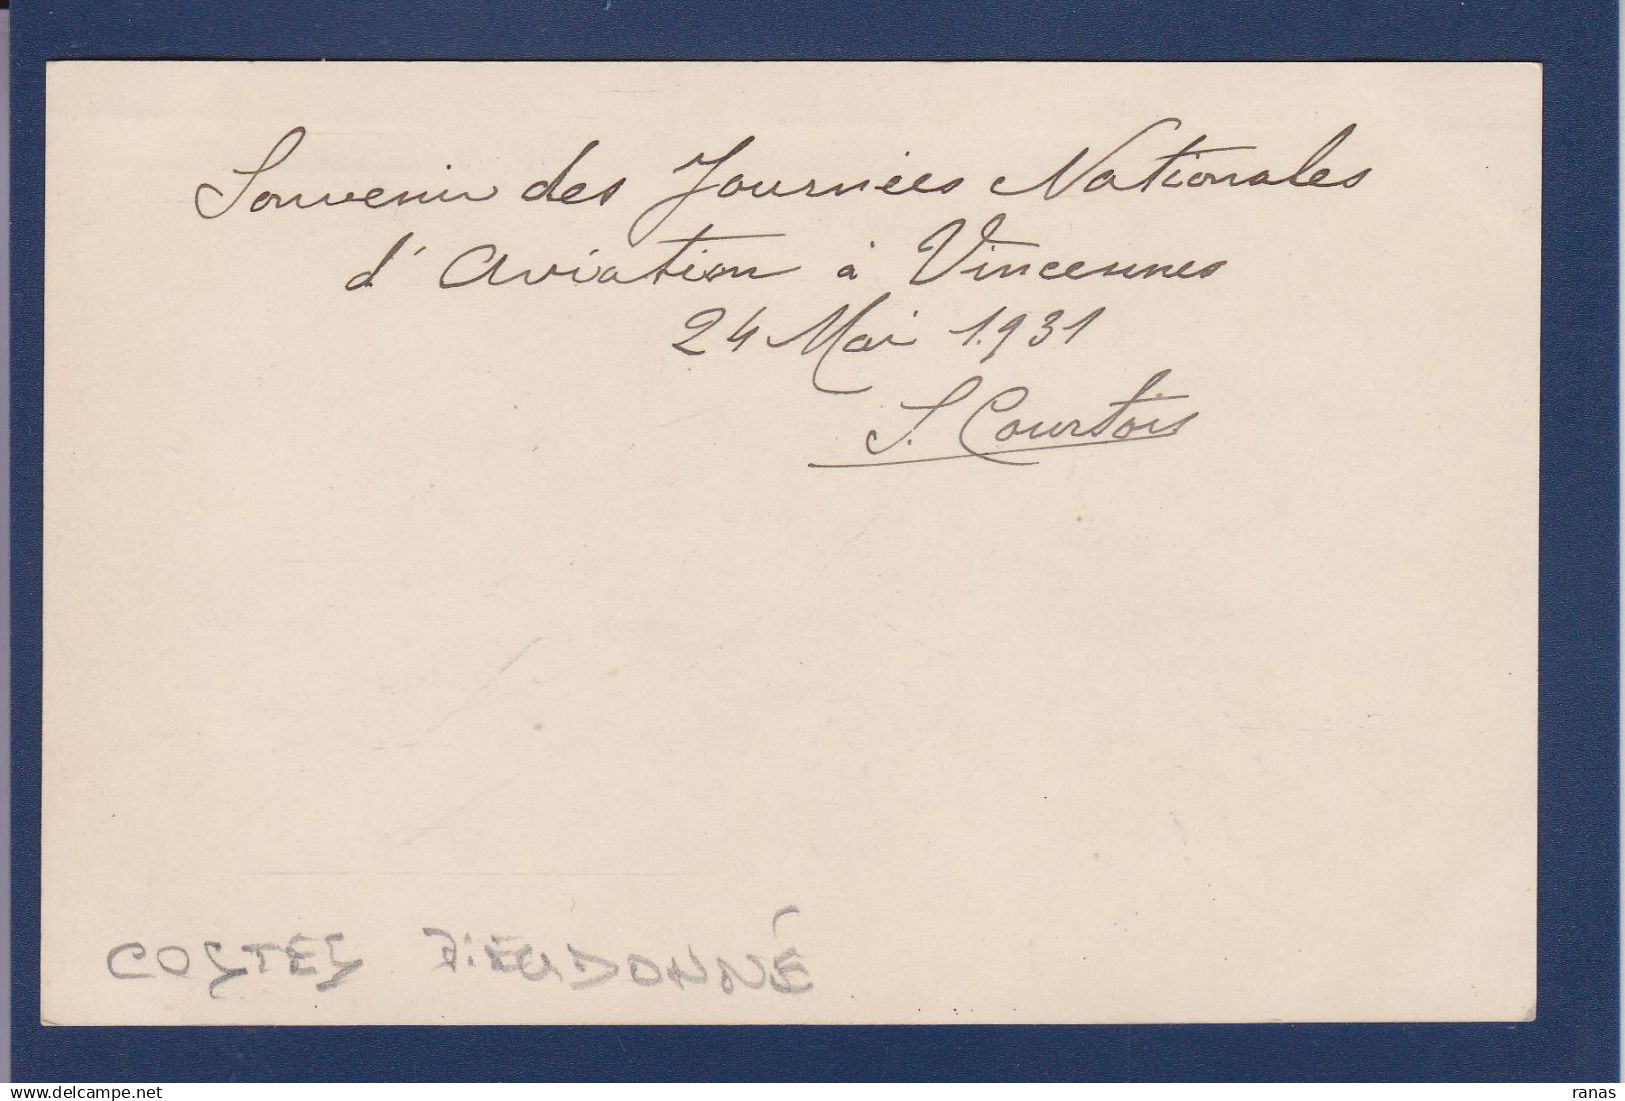 Souvenir des Journées Nationales
d'Aviation à Vincennes
24 Mai 1.931
S. Courtois
COSTES DIEUDONNÉ
www.delcampe.net
ranas